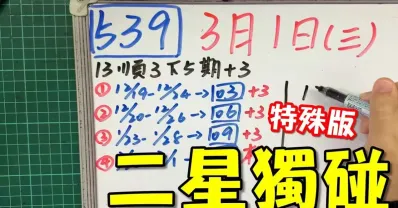 539 3月1日(三)
13順3下5期+3
① 12/19-12/24→03+3
② 12/20-12/26→06+3
③ 1/23-1/28→09+3
特殊版
二星獨碰